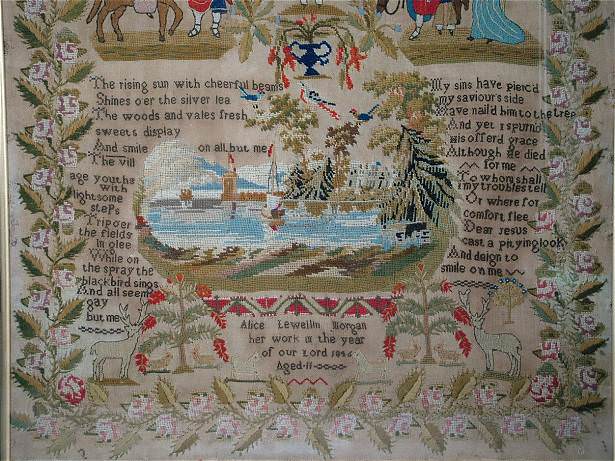 The rising sun with cheerful beams
Shines o'er the silver lea
The woods and vales fresh
sweets display
And smile on all, but me
The vill
age youths
with
lightsome
steps
Trip o'er
the fields
in glee
While on
the spray the
blackbird sings
And all seem
gay
but me
My sins have pierc'd
my saviour's side
Have nail'd him to the tree
And yet I spurn'd
his offer'd grace
Although he died
for me
To whom shall
my troubles tell
Or where for
comfort flee
Dear Jesus
cast a pitying look
And deign to
smile on me
Alice Lewellin Morgan
her work in the year
of our Lord
Aged 11